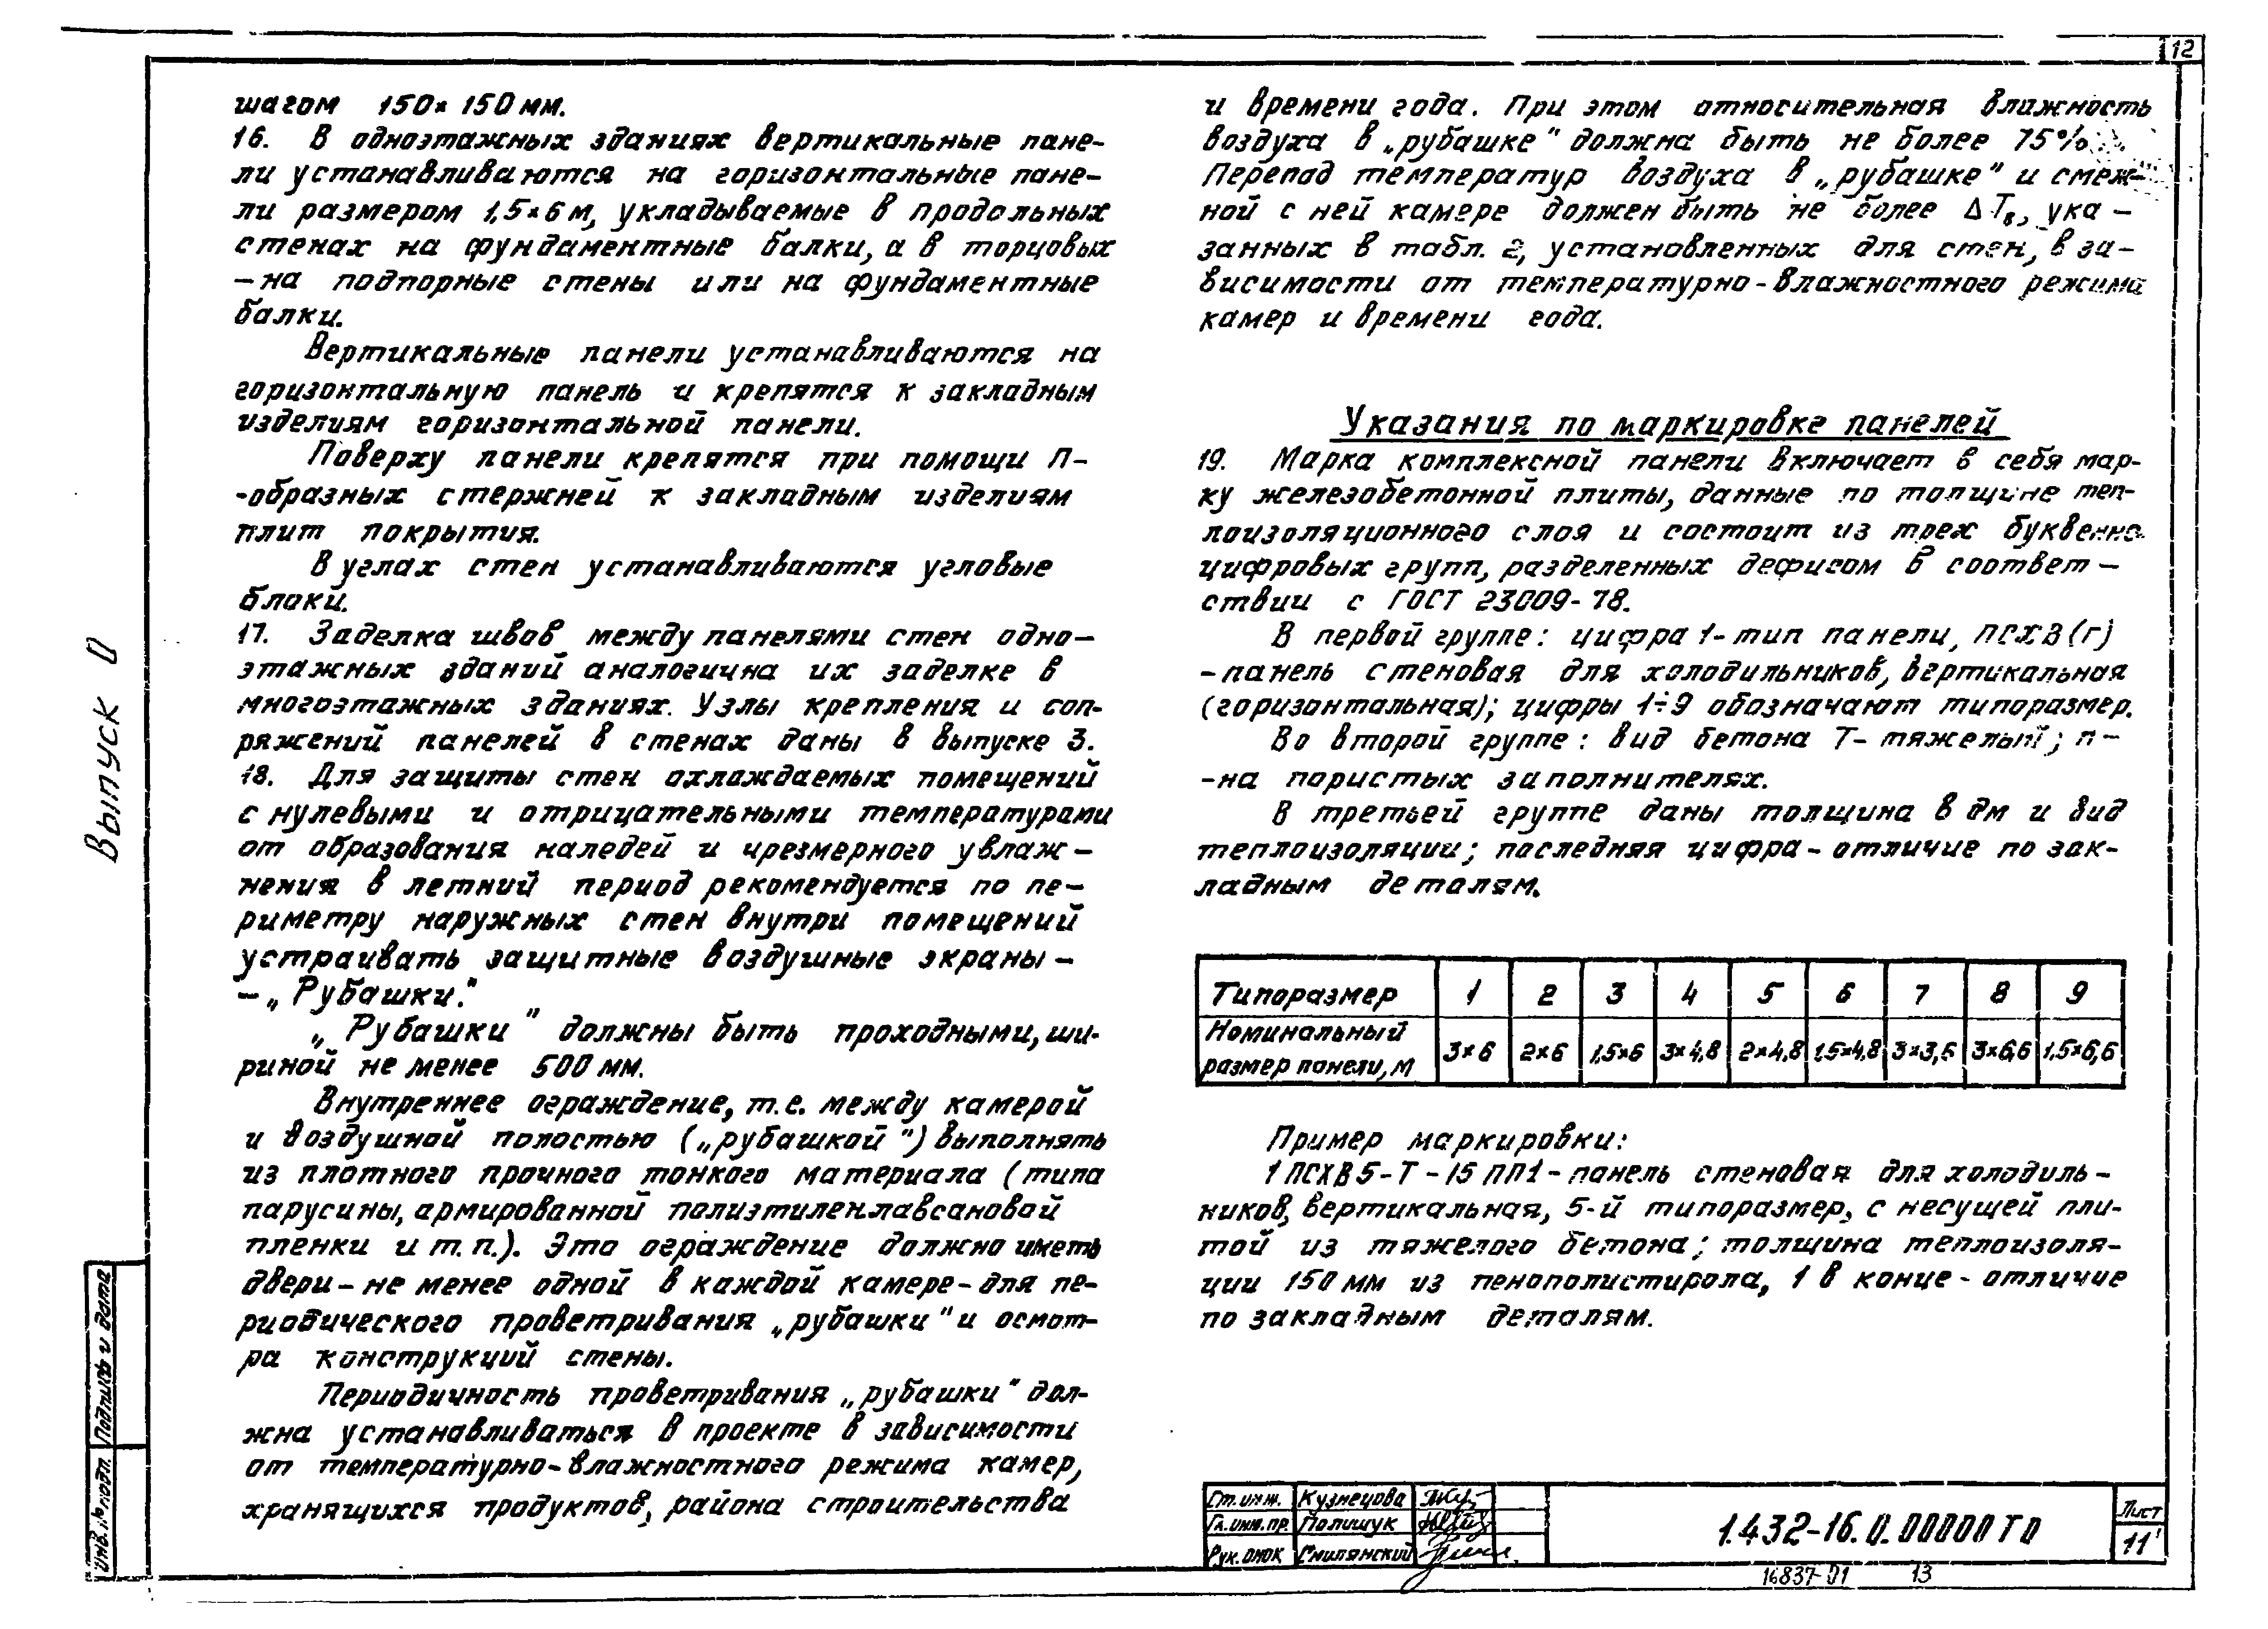 12
шагом 150×150 мм.
16. В одноэтажных зданиях вертикальные пане-
ли устанавливаются на горизонтальные пане-
ли размером 1,5×6 м, укладываемые в продольных
стенах на фундаментные балки, а в торцовых
– на подпорные стены или на фундаментные
балки.
Вертикальные панели устанавливаются на
горизонтальную панель и крепятся к закладным
изделиям горизонтальной панели.
Поверху панели крепятся при помощи П-
-образных стержней к закладным изделиям
плит покрытия.
В углах стен устанавливаются угловые
блоки.
17. Заделка швов между панелями стен одно-
этажных зданий аналогична их заделке в
многоэтажных зданиях. Узлы крепления и соп-
ряжений панелей в стенах даны в выпуске 3.
18. Для защиты стен охлаждаемых помещений
с нулевыми и отрицательными температурами
от образования наледей и чрезмерного увлаж-
нения в летний период рекомендуется по пе-
риметру наружных стен внутри помещений
устраивать защитные воздушные экраны –
– „Рубашки."
„Рубашки" должны быть проходными, ши-
риной не менее 500 мм.
Внутреннее ограждение, т.е. между камерой
и воздушной полостью („рубашкой") выполнять
из плотного прочного тонкого материала (типа
парусины, армированной полиэтиленлавсановой
пленки и т.п.). Это ограждение должно иметь
двери – не менее одной в каждой камере – для пе-
риодического проветривания „рубашки" и осмот-
ра конструкций стены.
Периодичность проветривания „рубашки" дол-
жна устанавливаться в проекте в зависимости
от температурно-влажностного режима камер,
хранящихся продуктов, района строительства
и времени года. При этом относительная влажность
воздуха в „рубашке" должна быть не более 75%.
Перепад температур воздуха в „рубашке" и смеж-
ной с ней камере должен быть не более ΔTв, ука-
занных в табл. 2, установленных для стен, в за-
висимости от температурно-влажностного режима
камер и времени года.
Указания по маркировке панелей
19. Марка комплексной панели включает в себя мар-
ку железобетонной плиты, данные по толщине теп-
лоизоляционного слоя и состоит из трех буквенно
цифровых групп, разделенных дефисом в соответ-
ствии с ГОСТ 23009-78.
В первой группе: цифра 1 - тип панели, ПСХВ(Г)
– панель стеновая для холодильников, вертикальная
(горизонтальная); цифры 1÷9 обозначают типоразмер.
Во второй группе: вид бетона Т- тяжелый; П-
-на пористых заполнителях.
В третьей группе даны толщина в дм и вид
теплоизоляции; последняя цифра - отличие по зак-
ладным деталям.
Типоразмер 1 2 3 4 5 6 7 8 9
Номинальный
размер панели, м 3×6 2×6 1,5×6 3×4,8 2×4,8 1,5×4,8 3×3,6 3×6,6 1,5×6,6
Пример маркировки:
1ПСХВ5-Т-15ПП1 - панель стеновая для холодиль-
ников, вертикальная, 5-й типоразмер, с несущей пли-
той из тяжелого бетона; толщина теплоизоля-
ции 150 мм из пенополистирола, 1 в конце - отличие
по закладным деталям.
Выпуск 0
Подпись и дата
Инв. № подп.
Ст. инж. Кузнецова
Гл. инж. пр. Полищук
Рук. Смилянский
1.432-16.0.00000ТО
Лист
11
16837-01 13